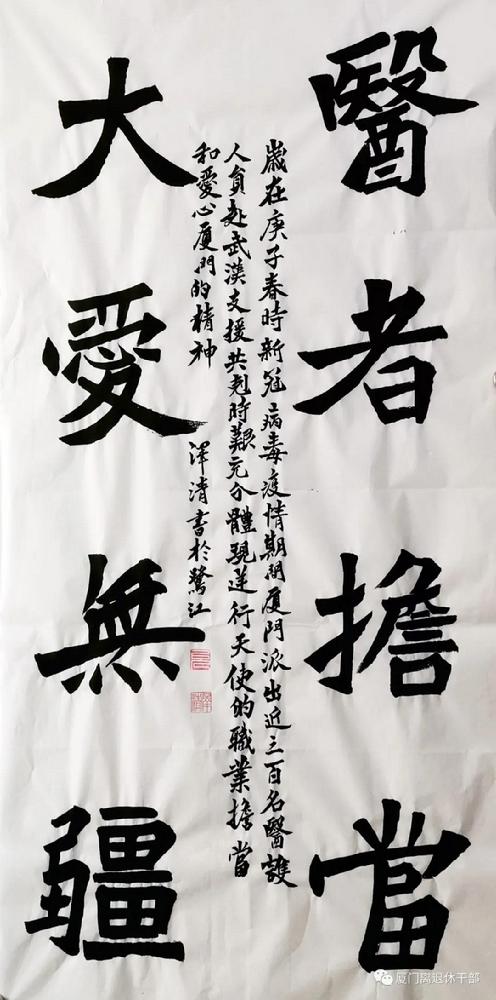 醫者擔當
大愛無疆
歲在庚子春時新冠病毒疫情期間厦門派出近三百名醫護
人員赴武漢支援共剋時艱充分體現逆行天使的職業擔當
和愛心厦門的精神
澤清書於鷺江
厦门离退休干部